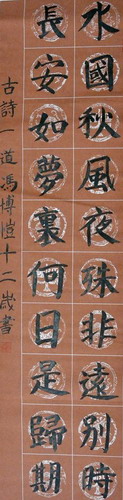 水國秋風夜殊非遠別時
長安如夢裏何日是歸期
古詩一道馮博愷十二歲書